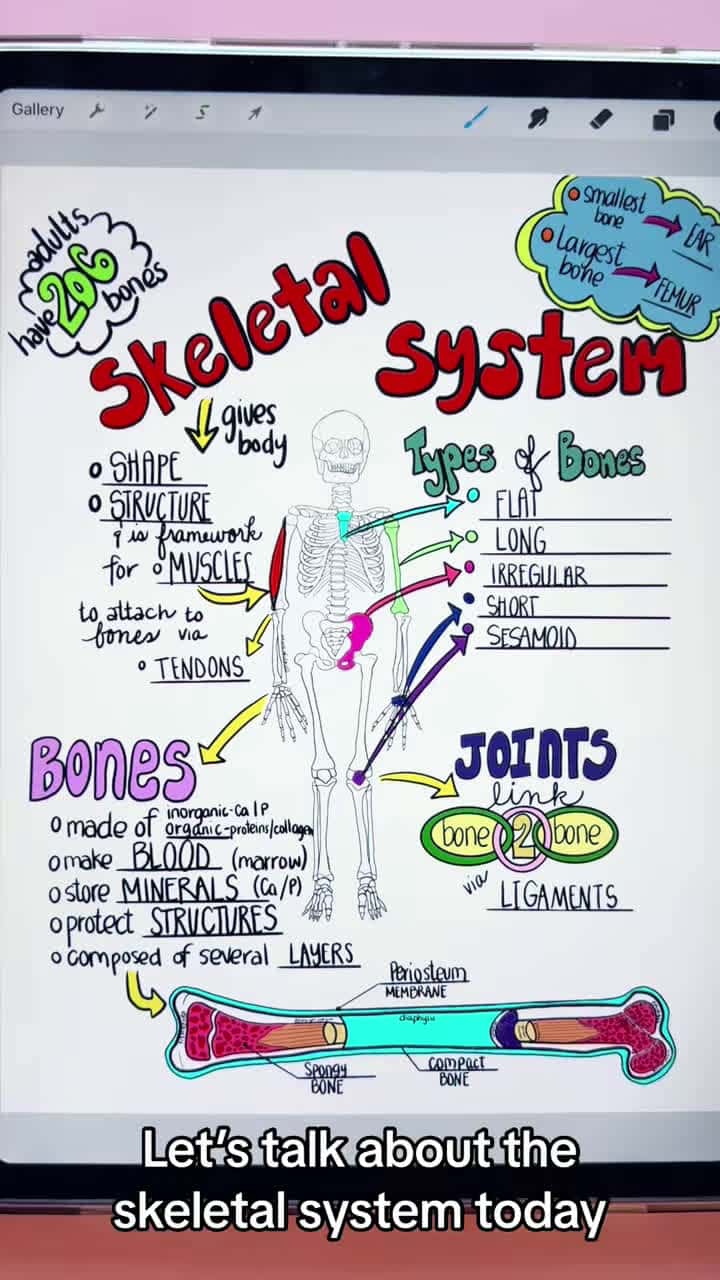 Gallery
adults
have 206 bones
smallest bone → EAR
Largest bone → FEMUR
Skeletal System
gives body
SHAPE
STRUCTURE
& is framework
for MUSCLES
to attach to
bones via
TENDONS
Types of Bones
FLAT
LONG
IRREGULAR
SHORT
SESAMOID
BONES
made of inorganic-Ca/P
organic-proteins/collagen
make BLOOD (marrow)
store MINERALS (Ca/P)
protect STRUCTURES
composed of several LAYERS
JOINTS
link
bone 2 bone
via LIGAMENTS
Periosteum
MEMBRANE
Spongy
BONE
compact
BONE
Let's talk about the
skeletal system today